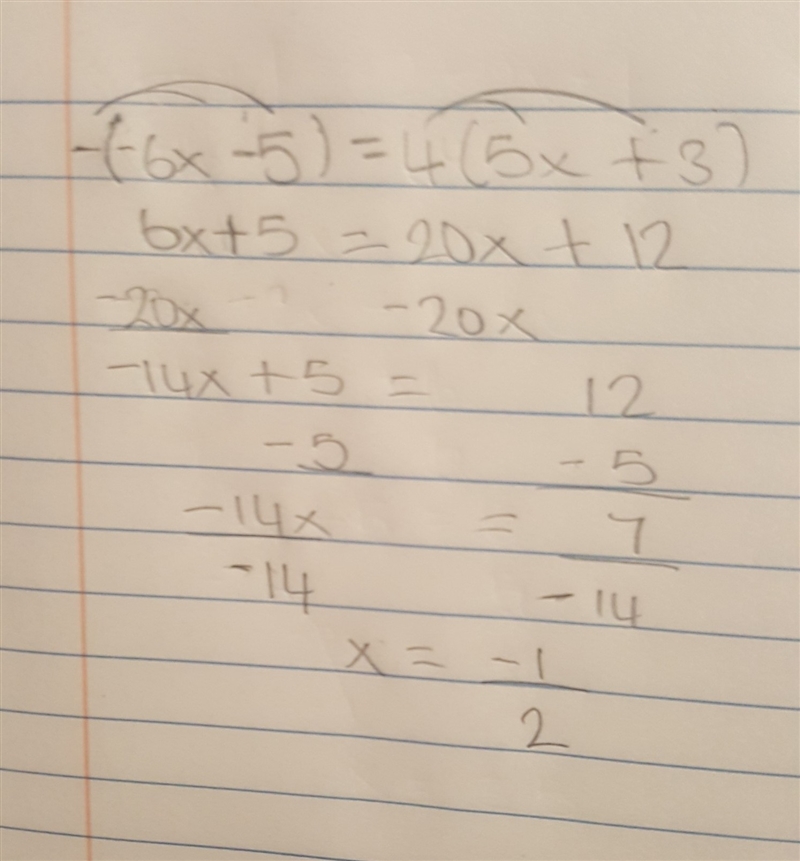 -(-6x -5) = 4(5x + 3)
6x+5 = 20x + 12
-20x -20x
-14x + 5 = 12
-5 -5
-14x = 7
-14 -14
x = -1
2